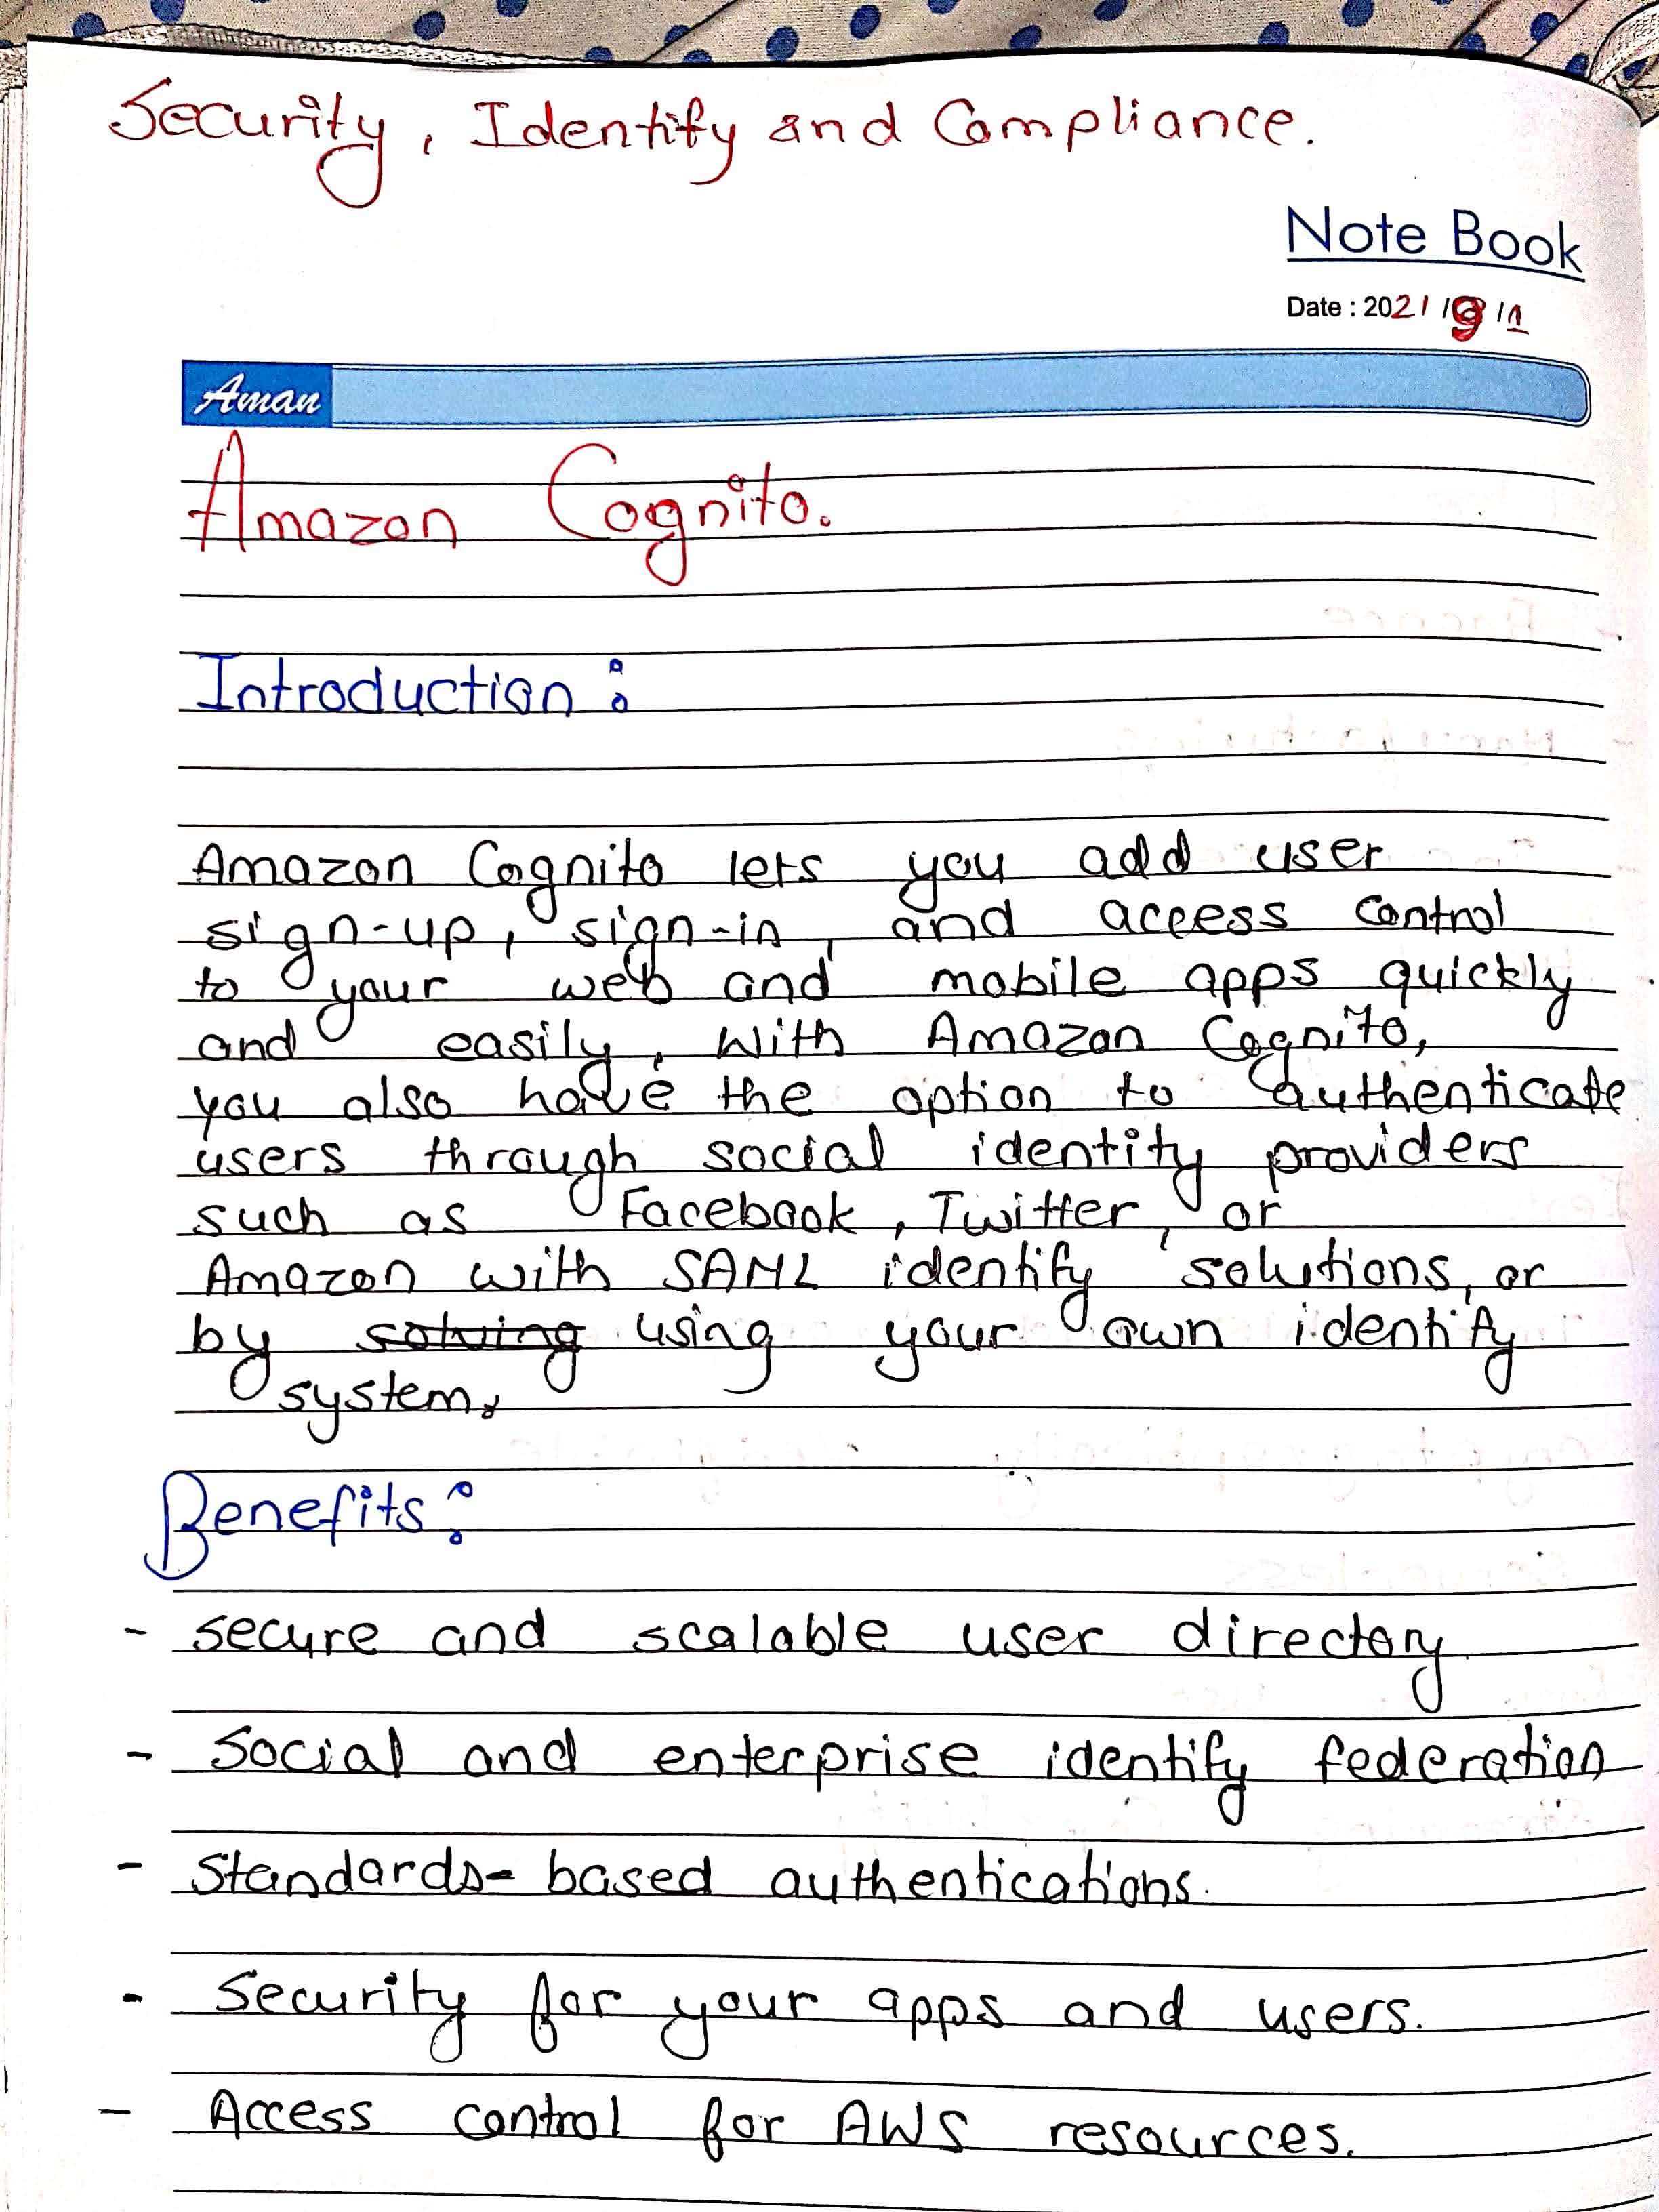 Security, Identify and Compliance.
Note Book
Date : 2021/9/1
Aman
Amazon Cognito.
Introduction :
Amazon Cognito lets you add user
sign-up, sign-in, and access control
to your web and mobile apps quickly
and easily, With Amazon Cognito,
you also have the option to authenticate
users through social identity providers
such as Facebook, Twitter, or
Amazon with SAML identify solutions, or
by solving using your own identify
system.
Benefits :
- secure and scalable user directory.
- Social and enterprise identify federation
- Standards-based authentications.
- Security for your apps and users.
- Access control for AWS resources.